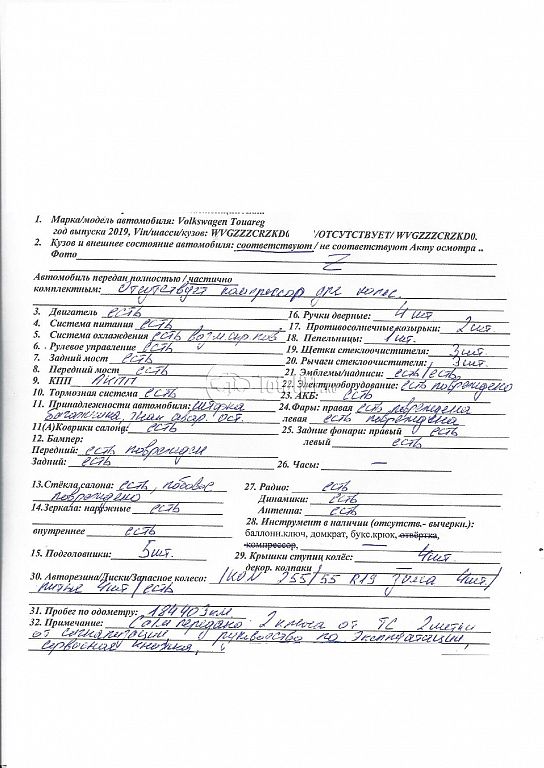 1. Марка/модель автомобиля: Volkswagen Touareg
год выпуска 2019, Vin/шасси/кузов: WVGZZZCRZKD0 /ОТСУТСТВУЕТ/ WVGZZZCRZKD0.
2. Кузов и внешнее состояние автомобиля: соответствуют / не соответствуют Акту осмотра ..
Фото Z
Автомобиль передан полностью / частично
комплектным: Отсутствует компрессор для колес.
3. Двигатель есть
4. Система питания есть
5. Система охлаждения есть
6. Рулевое управление есть
7. Задний мост есть
8. Передний мост есть
9. КПП АКПП
10. Тормозная система есть
11. Принадлежности автомобиля: шторка
багажника, знак авар. ост.
11(А)Коврики салона: есть
12. Бампер:
Передний: есть поврежден
Задний: есть
13.Стёкла,салона: есть, лобовое
повреждено
14.Зеркала: наружные есть
внутреннее есть
15. Подголовники: 5шт.
16. Ручки дверные: 4 шт
17. Противосолнечные козырьки: 2шт.
18. Пепельницы: 1шт.
19. Щетки стеклоочистителя: 3шт.
20. Рычаги стеклоочистителя: 3шт.
21. Эмблемы/надписи: есть/есть
22. Электрооборудование: есть повреждено
23. АКБ: есть
24.Фары: правая есть повреждена
левая есть повреждена
25. Задние фонари: правый есть
левый есть
26. Часы: —
27. Радио: есть
Динамики: есть
Антенна: есть
28. Инструмент в наличии (отсутств.- вычеркн.):
баллонн.ключ, домкрат, букс.крюк, отвёртка,
компрессор, —
29. Крышки ступиц колёс: 4шт.
декор. колпаки —
30. Авторезина/Диски/Запасное колесо: 255/55 R19 зима 4шт/
литые 4шт/есть
31. Пробег по одометру: 184403км
32. Примечание: Сам передано 2 ключа от ТС 2метки
от сигнализации, руководство по эксплуатации,
сервисная книжка,